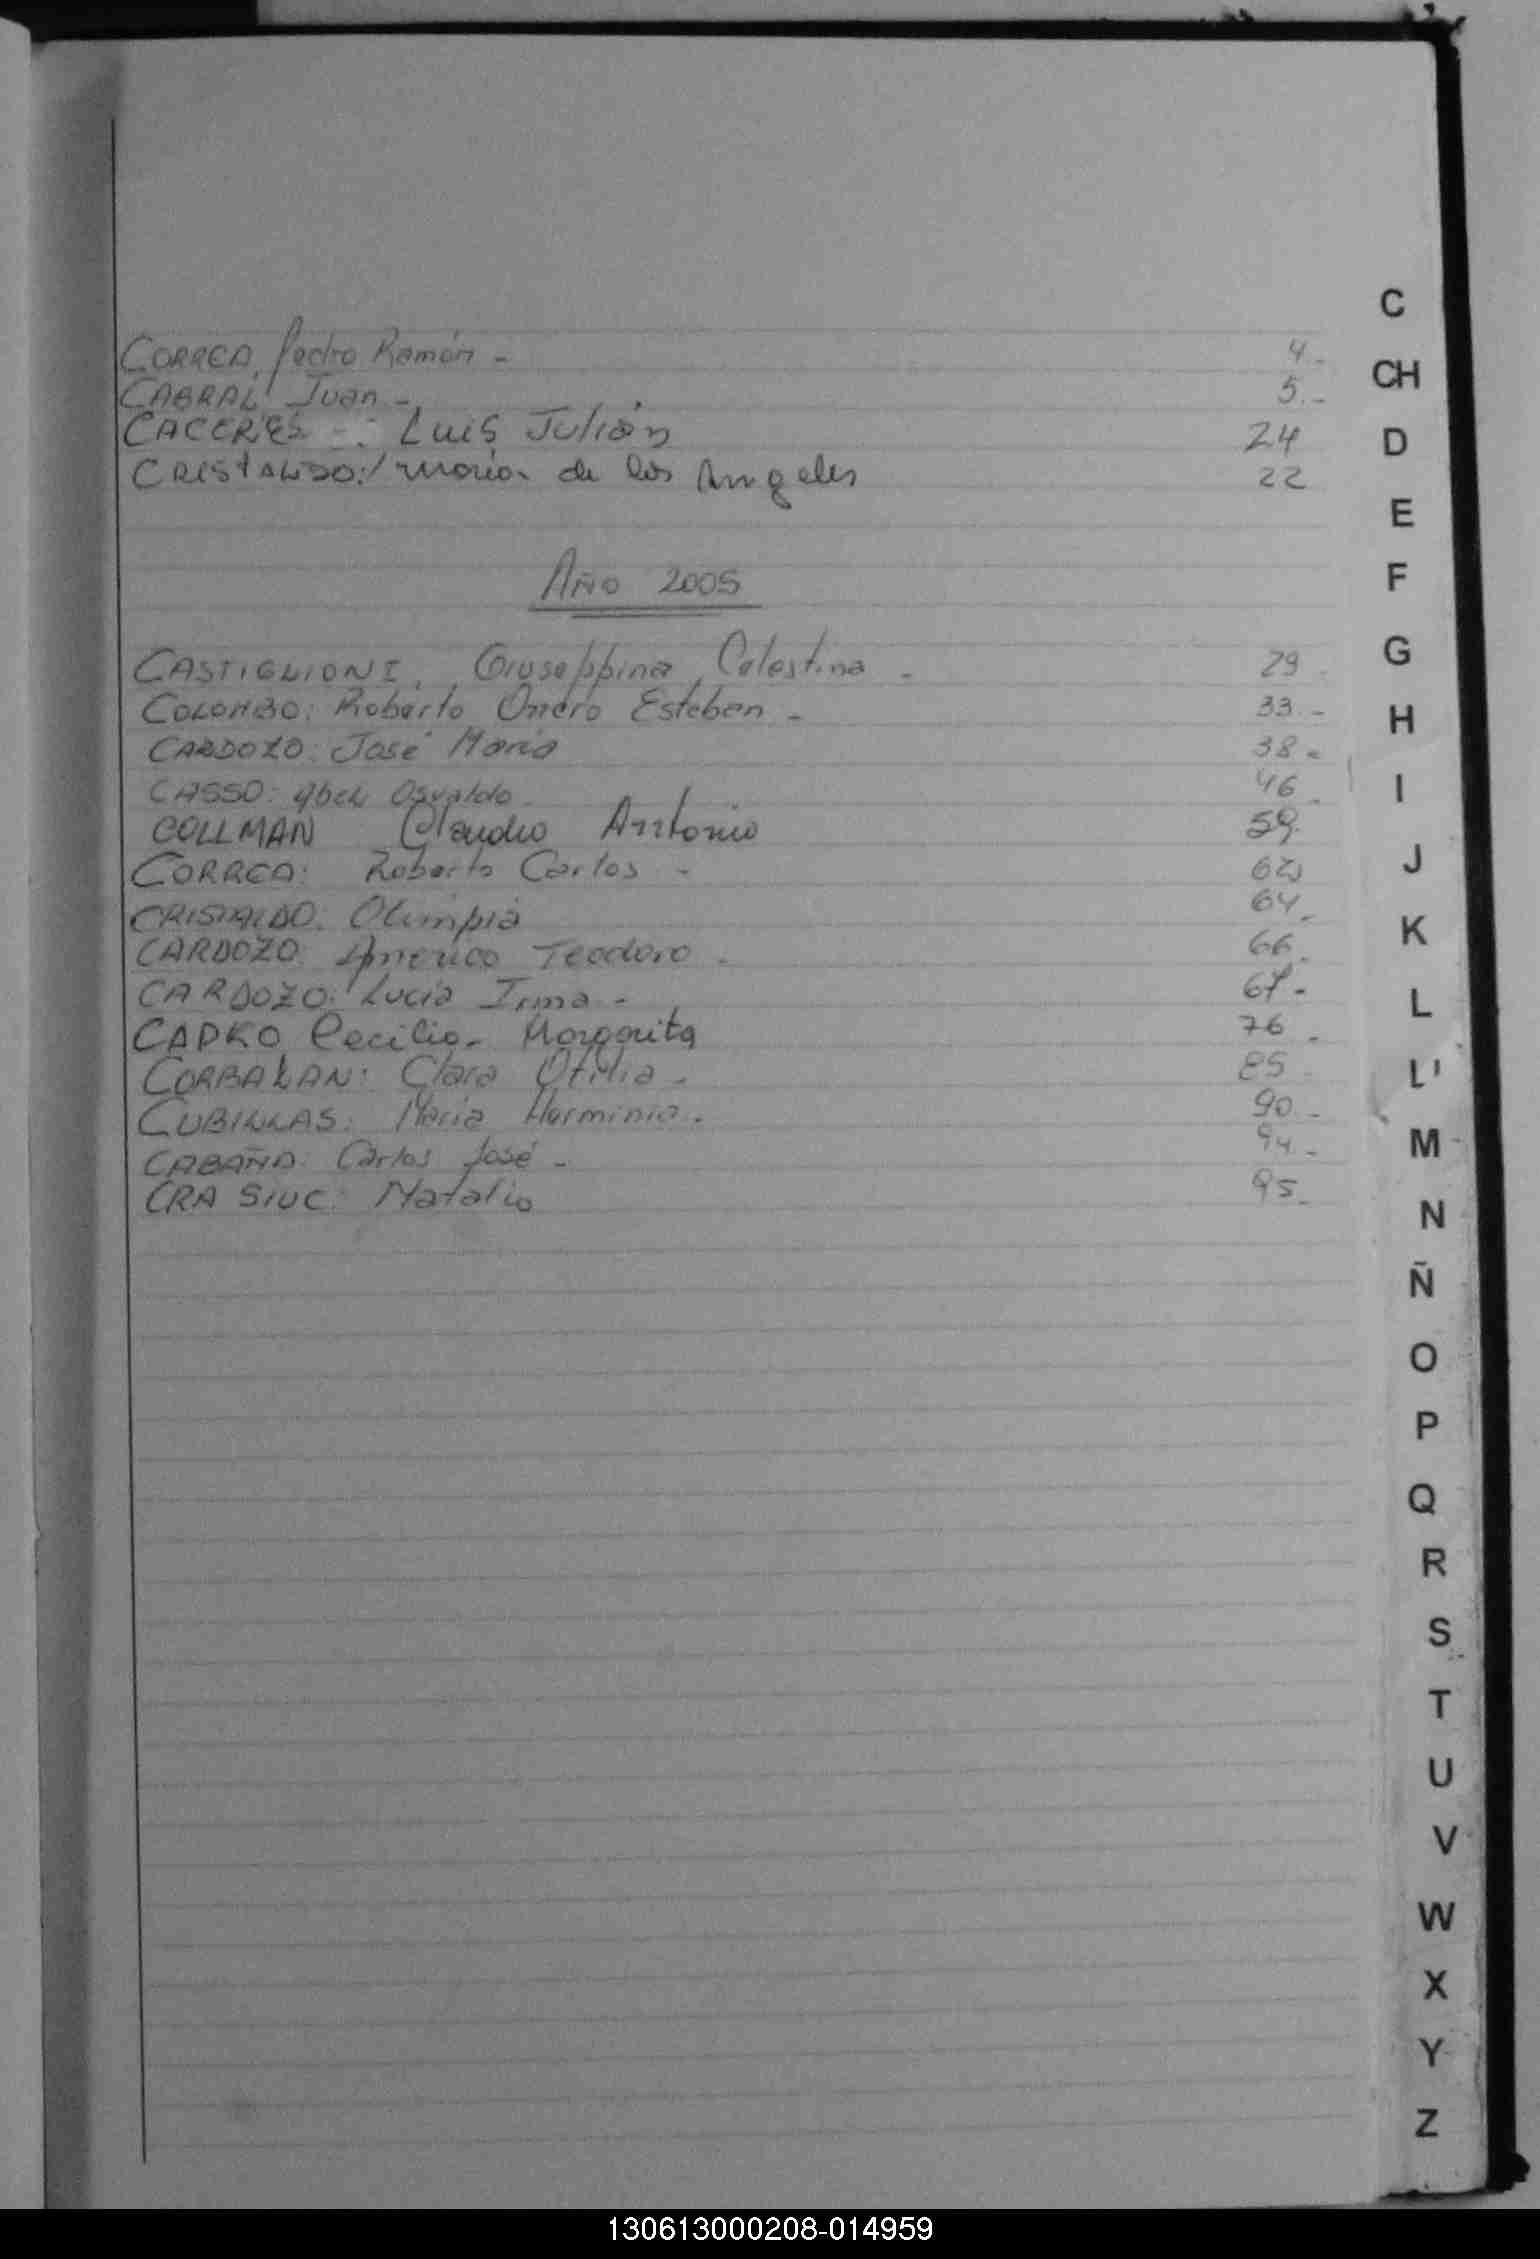 C
CORREA, Pedro Ramón - 4.-
CH
CABRAL Juan.- 5.-
CACERES -: Luis Julián 24
D
CRISTALDO: María de los Angeles 22
E
AÑO 2005
F
G
CASTIGLIONI, Giuseppina Celestina - 29.
COLOMBO: Roberto Omero Esteban - 33.-
H
CARDOZO: José María 38-
CASSO: Abel Osvaldo. 46.
I
COLLMAN Claudio Antonio 59.
CORREA: Roberto Carlos -
J
CRISTALDO: Olimpia 64.
K
CARDOZO: Américo Teodoro. 66.
CARDOZO: Lucía Irma - 67-
L
CAPKO Cecilia Margarita 76.
CORBALAN: Clara Otilia. 85
L'
CUBILLAS: María Herminia. 90.-
M
CABAÑA: Carlos José - 94.-
CRASIUC: Natalio 95.
N
Ñ
O
P
Q
R
S
T
U
V
W
X
Y
Z
130613000208-014959